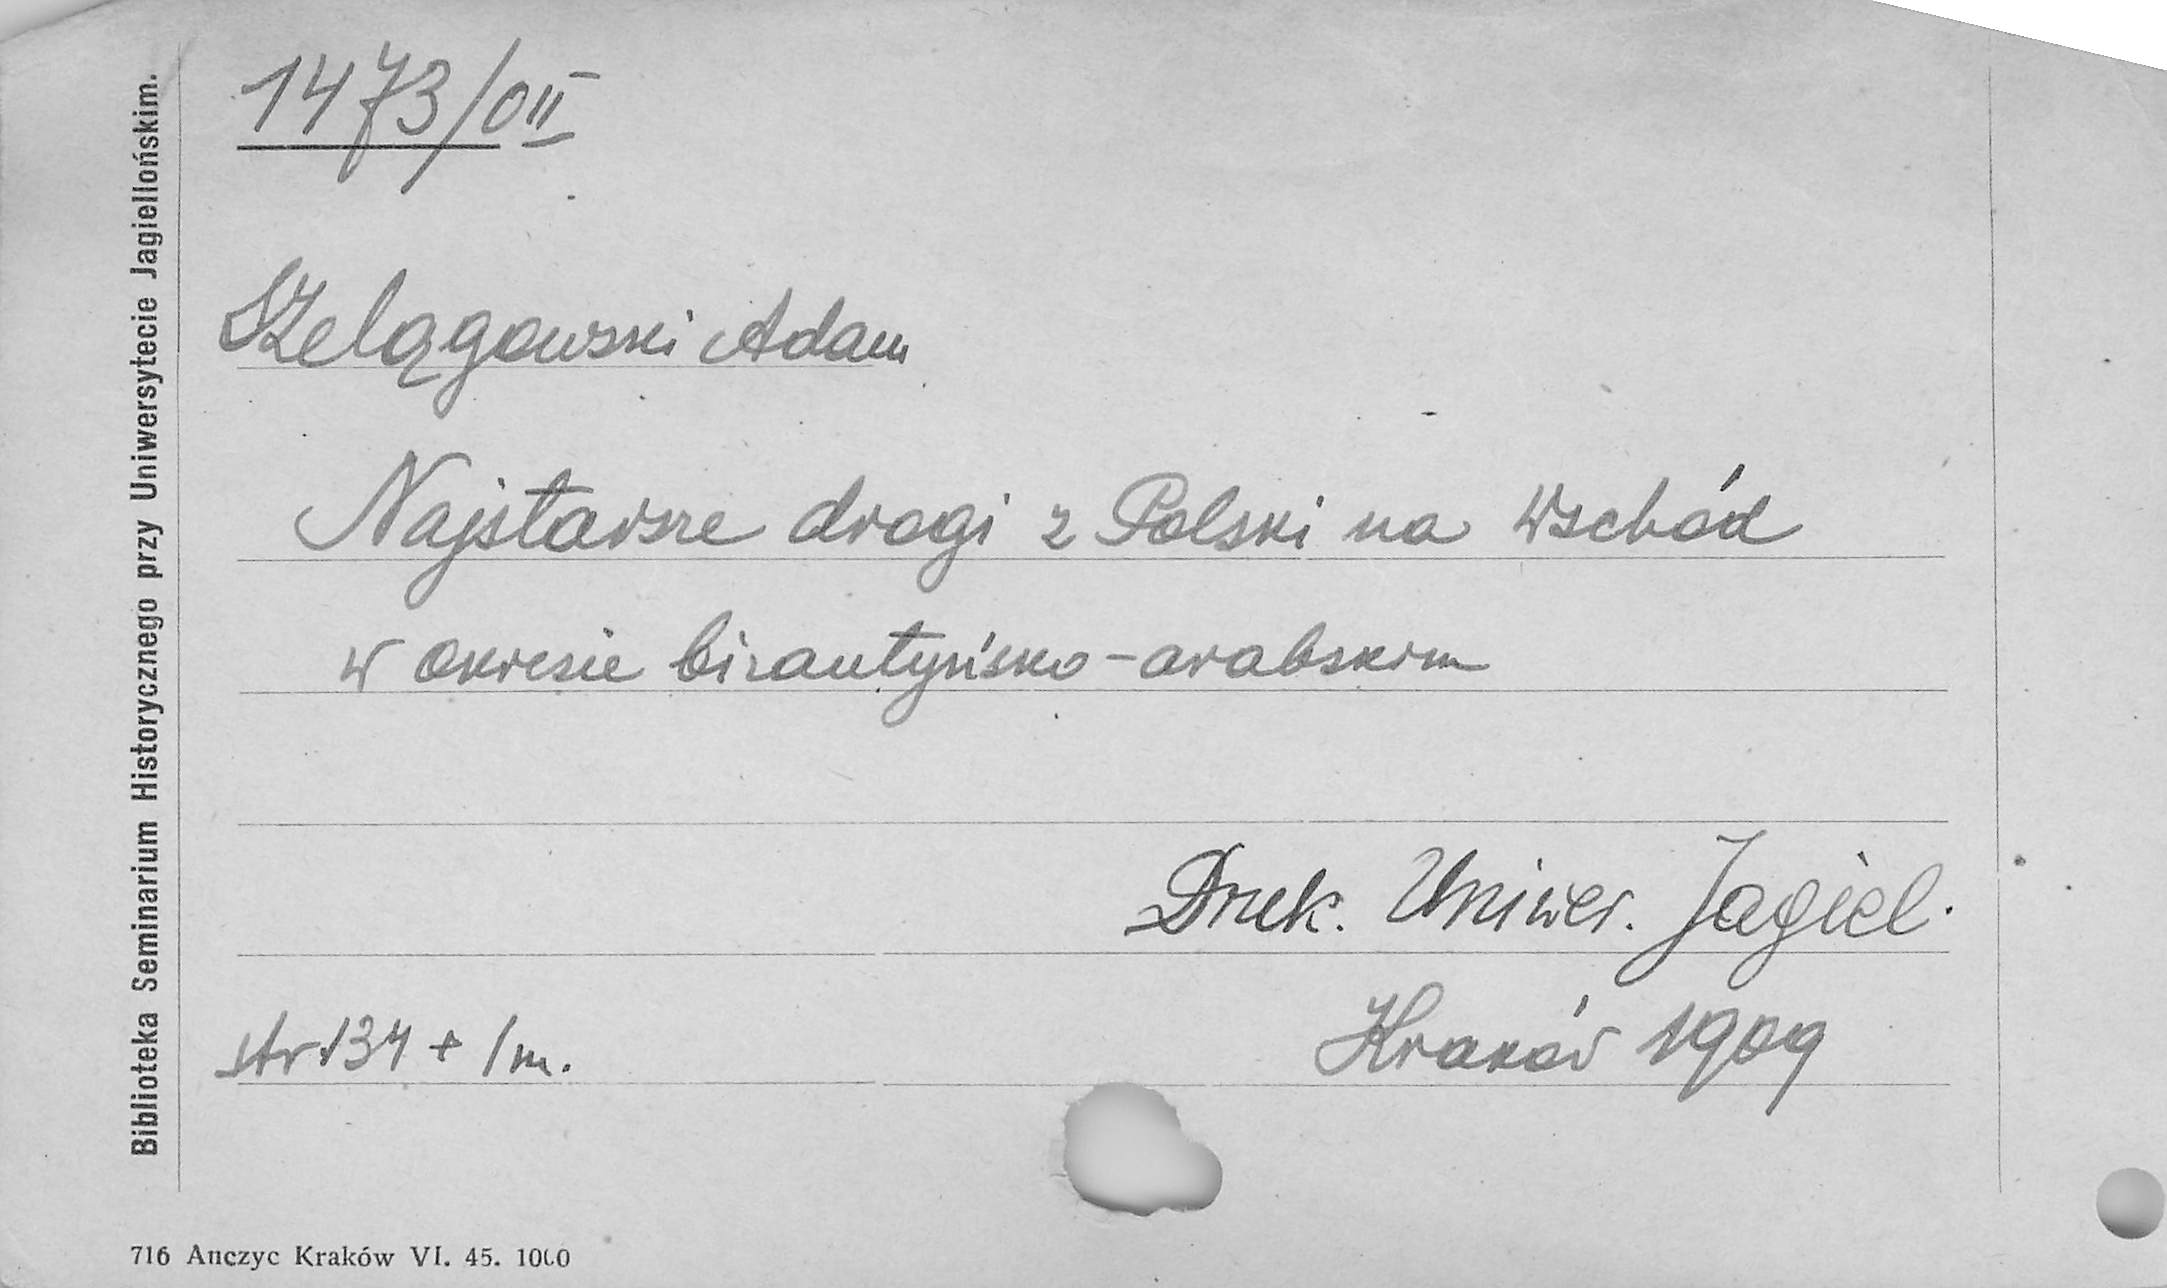 1473/0II
Szelągowski Adam
Najstarsze drogi z Polski na Wschód
w okresie bizantyńsko-arabskim
Druk. Uniwer. Jagiel.
str 134 + 1 m.
Kraków 1909
Biblioteka Seminarium Historycznego przy Uniwersytecie Jagiellońskim.
716 Anczyc Kraków VI. 45. 1000